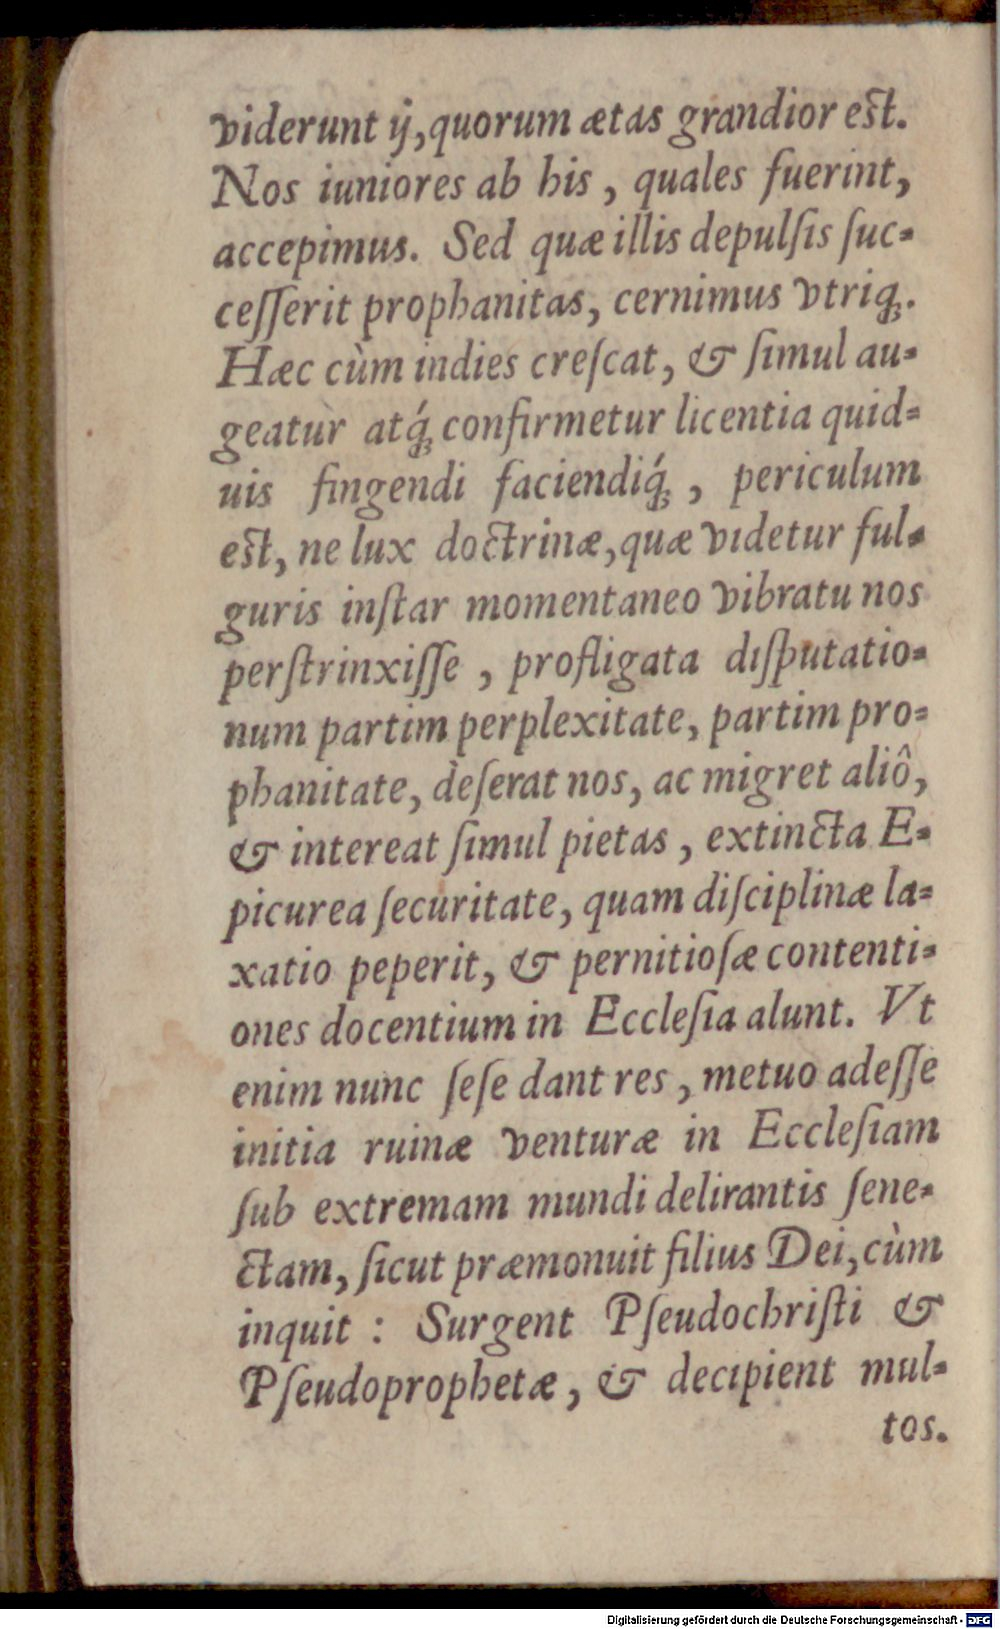 viderunt ij, quorum ætas grandior est.
Nos iuniores ab his, quales fuerint,
accepimus. Sed quæ illis depulſis ſuc-
ceſſerit prophanitas, cernimus vtriq́;.
Hæc cùm indies creſcat, & ſimul au-
geatur atq́; confirmetur licentia quid-
uis fingendi faciendiq́;, periculum
est, ne lux doctrinæ, quæ videtur ful-
guris inſtar momentaneo vibratu nos
perſtrinxiſſe, profligata diſputatio-
num partim perplexitate, partim pro-
phanitate, deſerat nos, ac migret aliô,
& intereat ſimul pietas, extincta E-
picurea ſecuritate, quam diſciplinæ la-
xatio peperit, & pernitioſæ contenti-
ones docentium in Eccleſia alunt. Vt
enim nunc ſeſe dant res, metuo adeſſe
initia ruinæ venturæ in Eccleſiam
ſub extremam mundi delirantis ſene-
ctam, ſicut præmonuit filius Dei, cùm
inquit : Surgent Pſeudochriſti &
Pſeudoprophetæ, & decipient mul-
tos.
Digitalisierung gefördert durch die Deutsche Forschungsgemeinschaft - DFG